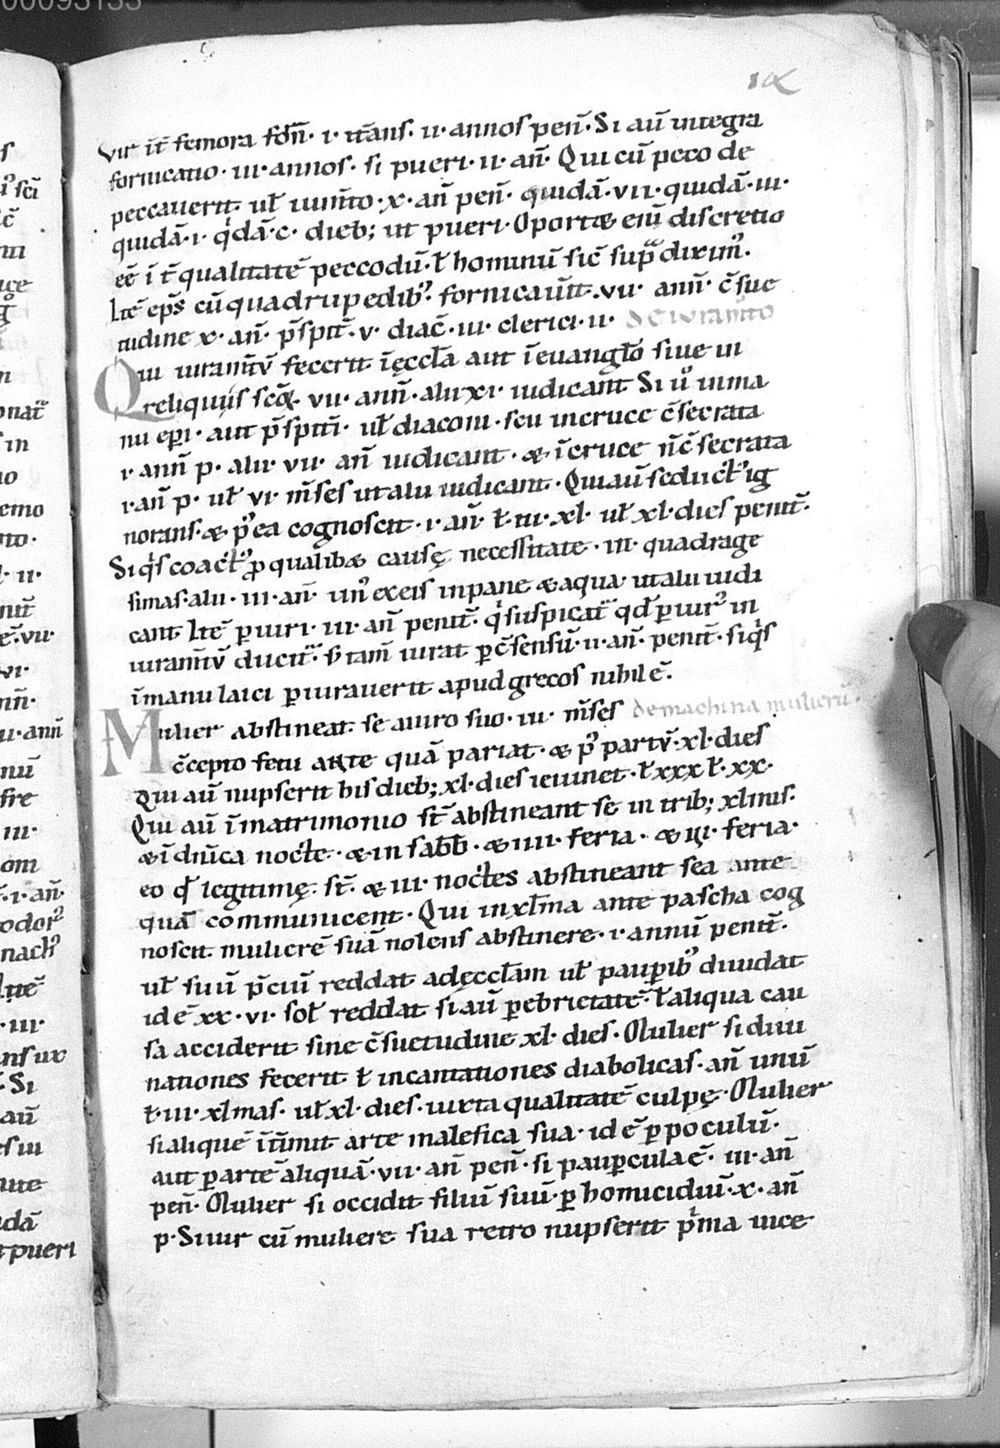 00093133
ıα
vir it̄ femora fōrn̄· i· it̄rans· ii· annos pen̄· Si aū integra
fornicatio· iii· annos· si pueri· ii· an̄· Qui cū peco de
peccauerit· uƚ iumt̄o· x· an̄ pen̄· quidā· vii· quidā· iii·
quidā· i· qͥdā· c· dieb; ut pueri· Oport& enī discretio
eē ī t̄ qualitatē peccodū· ƚ hominū sic̄ sup̄ diximꝰ·
Itē ep̄s cū quadrupedibꝰ fornicaūit· vii· ann̄· c̄sue
tudine x· an̄· p̄spit̄· v· diac̄· iii· clerici· ii· de iuram̄to
Qui iuram̄tv̄ fecerit ī ęccl̄a aut ī euanglĩo siue in
reliquiis scōꝝ· vii· ann̄· alii xi· iudicant̄ Si ū inma
nu ep̄i· aut p̄spit̄i· uƚ diaconi· seu incruce c̄secrata
i· ann̄ p· alii· vii· an̄ iudicant· & ī cruce n̄ c̄secrata
i· an̄ p· uƚ vi· m̄ses ut alii iudicant· Qui aū seductꝰ ig
norans· & pꝰea cognoscit· i· an̄· ƚ iii· xl· uƚ xl· dies penit̄·
Siqͥs coactꝰ ꝓ qualib& causę necessitate· iii· quadrage
simas· alii· iii· an̄· unꝰ exeis inpane & aqua· ut alii iudi
cant· Itē ꝑiuri· iii· an̄ penit̄· qͥ suspicat̄ qd̄ ꝑiurꝰ in
iuram̄tv̄ ducit̄· v̄ tam̄ iurat ꝑ c̄sensū· ii· an̄· penit̄· siqͥs
ī manu laici ꝑiurauerit apud grecos nihil ē·
Mulier abstineat· se auiro suo· iii· m̄ses de machina mulierū·
c̄cepto fetu ante quā pariat· & pꝰ partv̄· xl· dies
Qui aū nupserit his dieb; xl· dies ieiunet· ƚ xxx ƚ· xx·
Qui aū ī matrimonio st̄ abstineant se in trib; xlmis·
& ī dn̄ica nocte· & in sabb̄· & iiii· feria· & iii· feria·
eo qd̄ legitimę· st̄· & iii· noctes abstineant sea ante
quā communicent· Qui in xlma ante pascha cog
noscit· mulierē suā nolens abstinere· i· annū penit̄·
uƚ suū p̄ciū reddat adęccl̄am uƚ pauꝑibꝰ diuidat
id ē xx· vi· sol̄ reddat si aū ꝑ ebrietatē· ƚ aliqua cau
sa acciderit sine c̄suetudine xl· dies· Mulier si diui
nationes fecerit· ƚ incantationes diabolicas· an̄ unū
ƚ· iii· xlmas· uƚ xl· dies· iuxta qualitatē culpę· Mulier
si aliquē īt̄imit arte malefica sua· id ē ꝑ poculū·
aut ꝑ artē aliquā· vii· an̄ pen̄· si pauꝑcula ē· iii· an̄
pen̄· Mulier si occidit filiū suū· ꝑ homicidiū· x· an̄
p· Si uir cū muliere sua retro nupserit pͥma uice